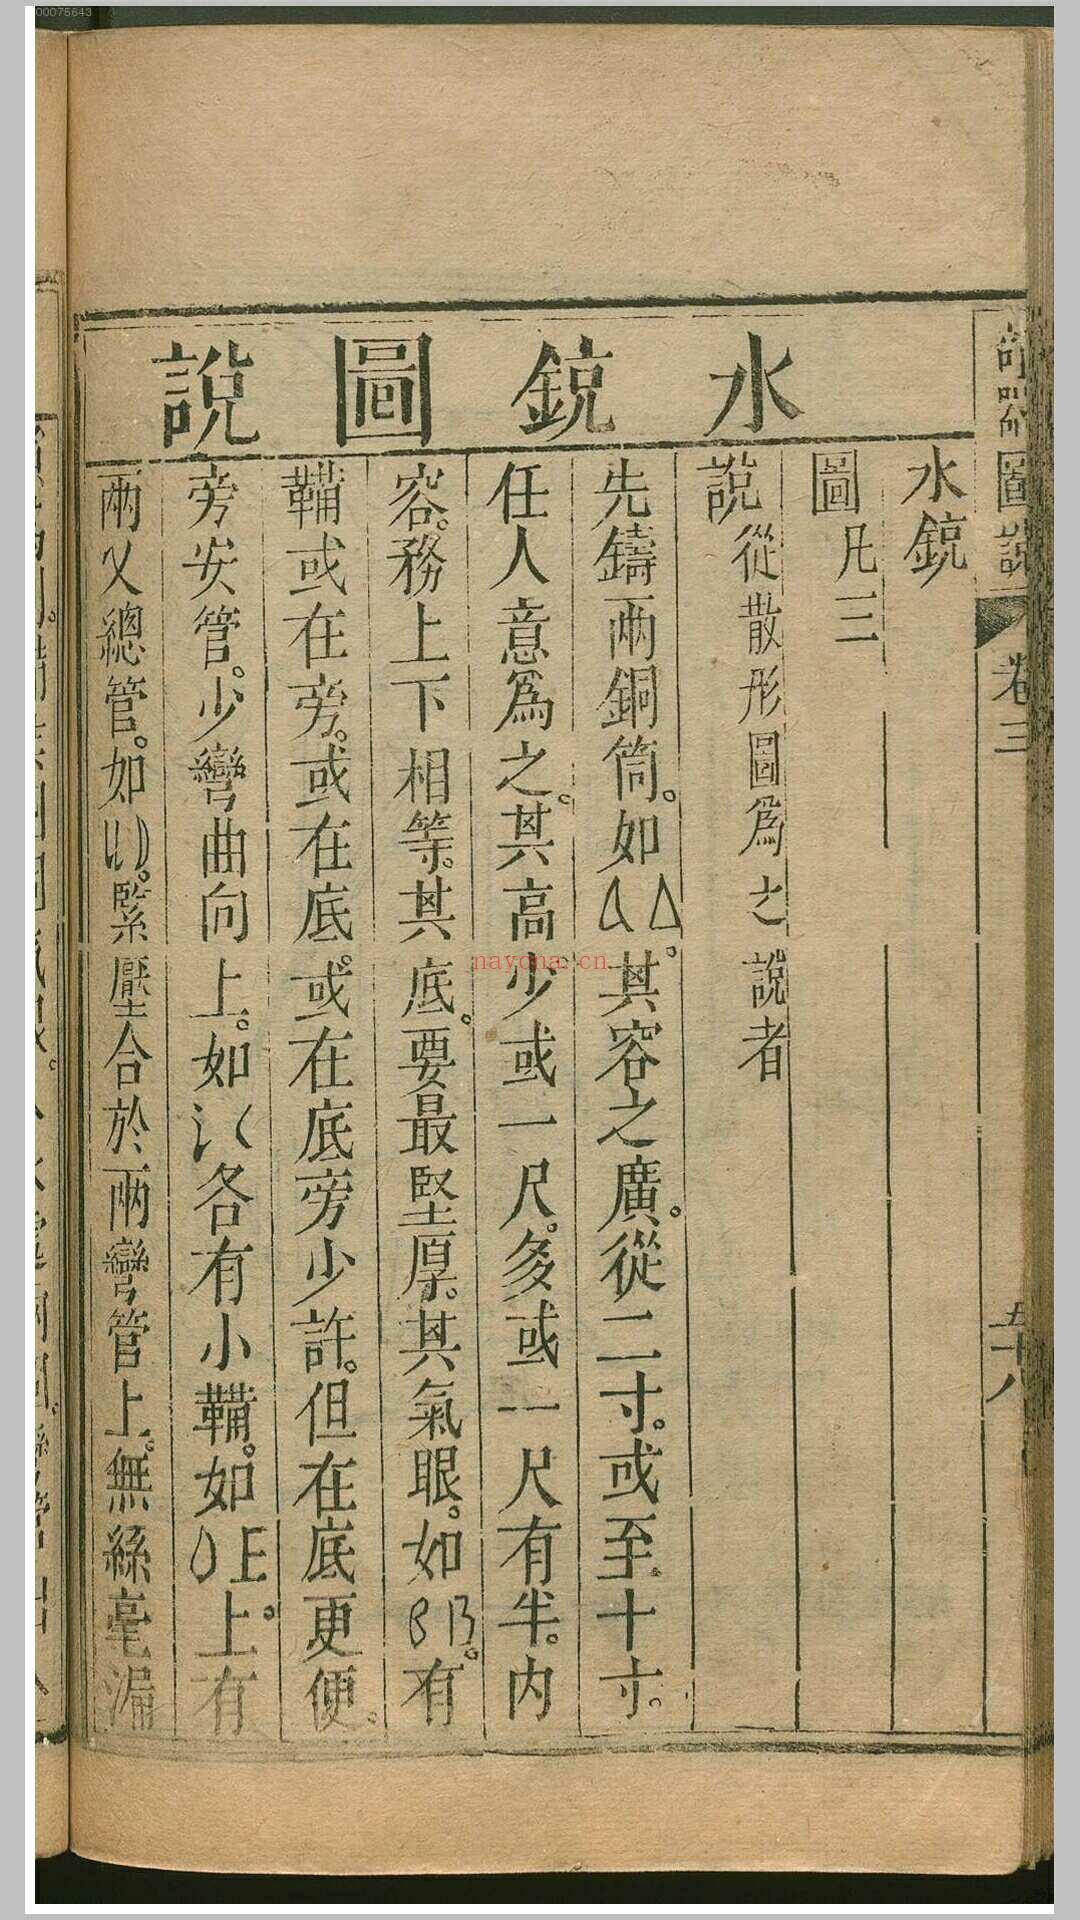 00075643
奇器圖說
卷三
五十八
水銃圖說
水銃
圖凡三
說從散形圖爲之說者
先鑄兩銅筒。如 。其容之廣。從二寸。或至十寸。
任人意爲之。其高少或一尺。多或一尺有半。內
容。務上下相等。其底。要最堅厚。其氣眼。如 。有
鞴或在旁。或在底。或在底旁少許。但在底更便。
旁安管。少彎曲向上。如 各有小鞴。如 上。有
兩叉總管。如 。緊壓合於兩彎管上。無絲毫漏
nayona.cn